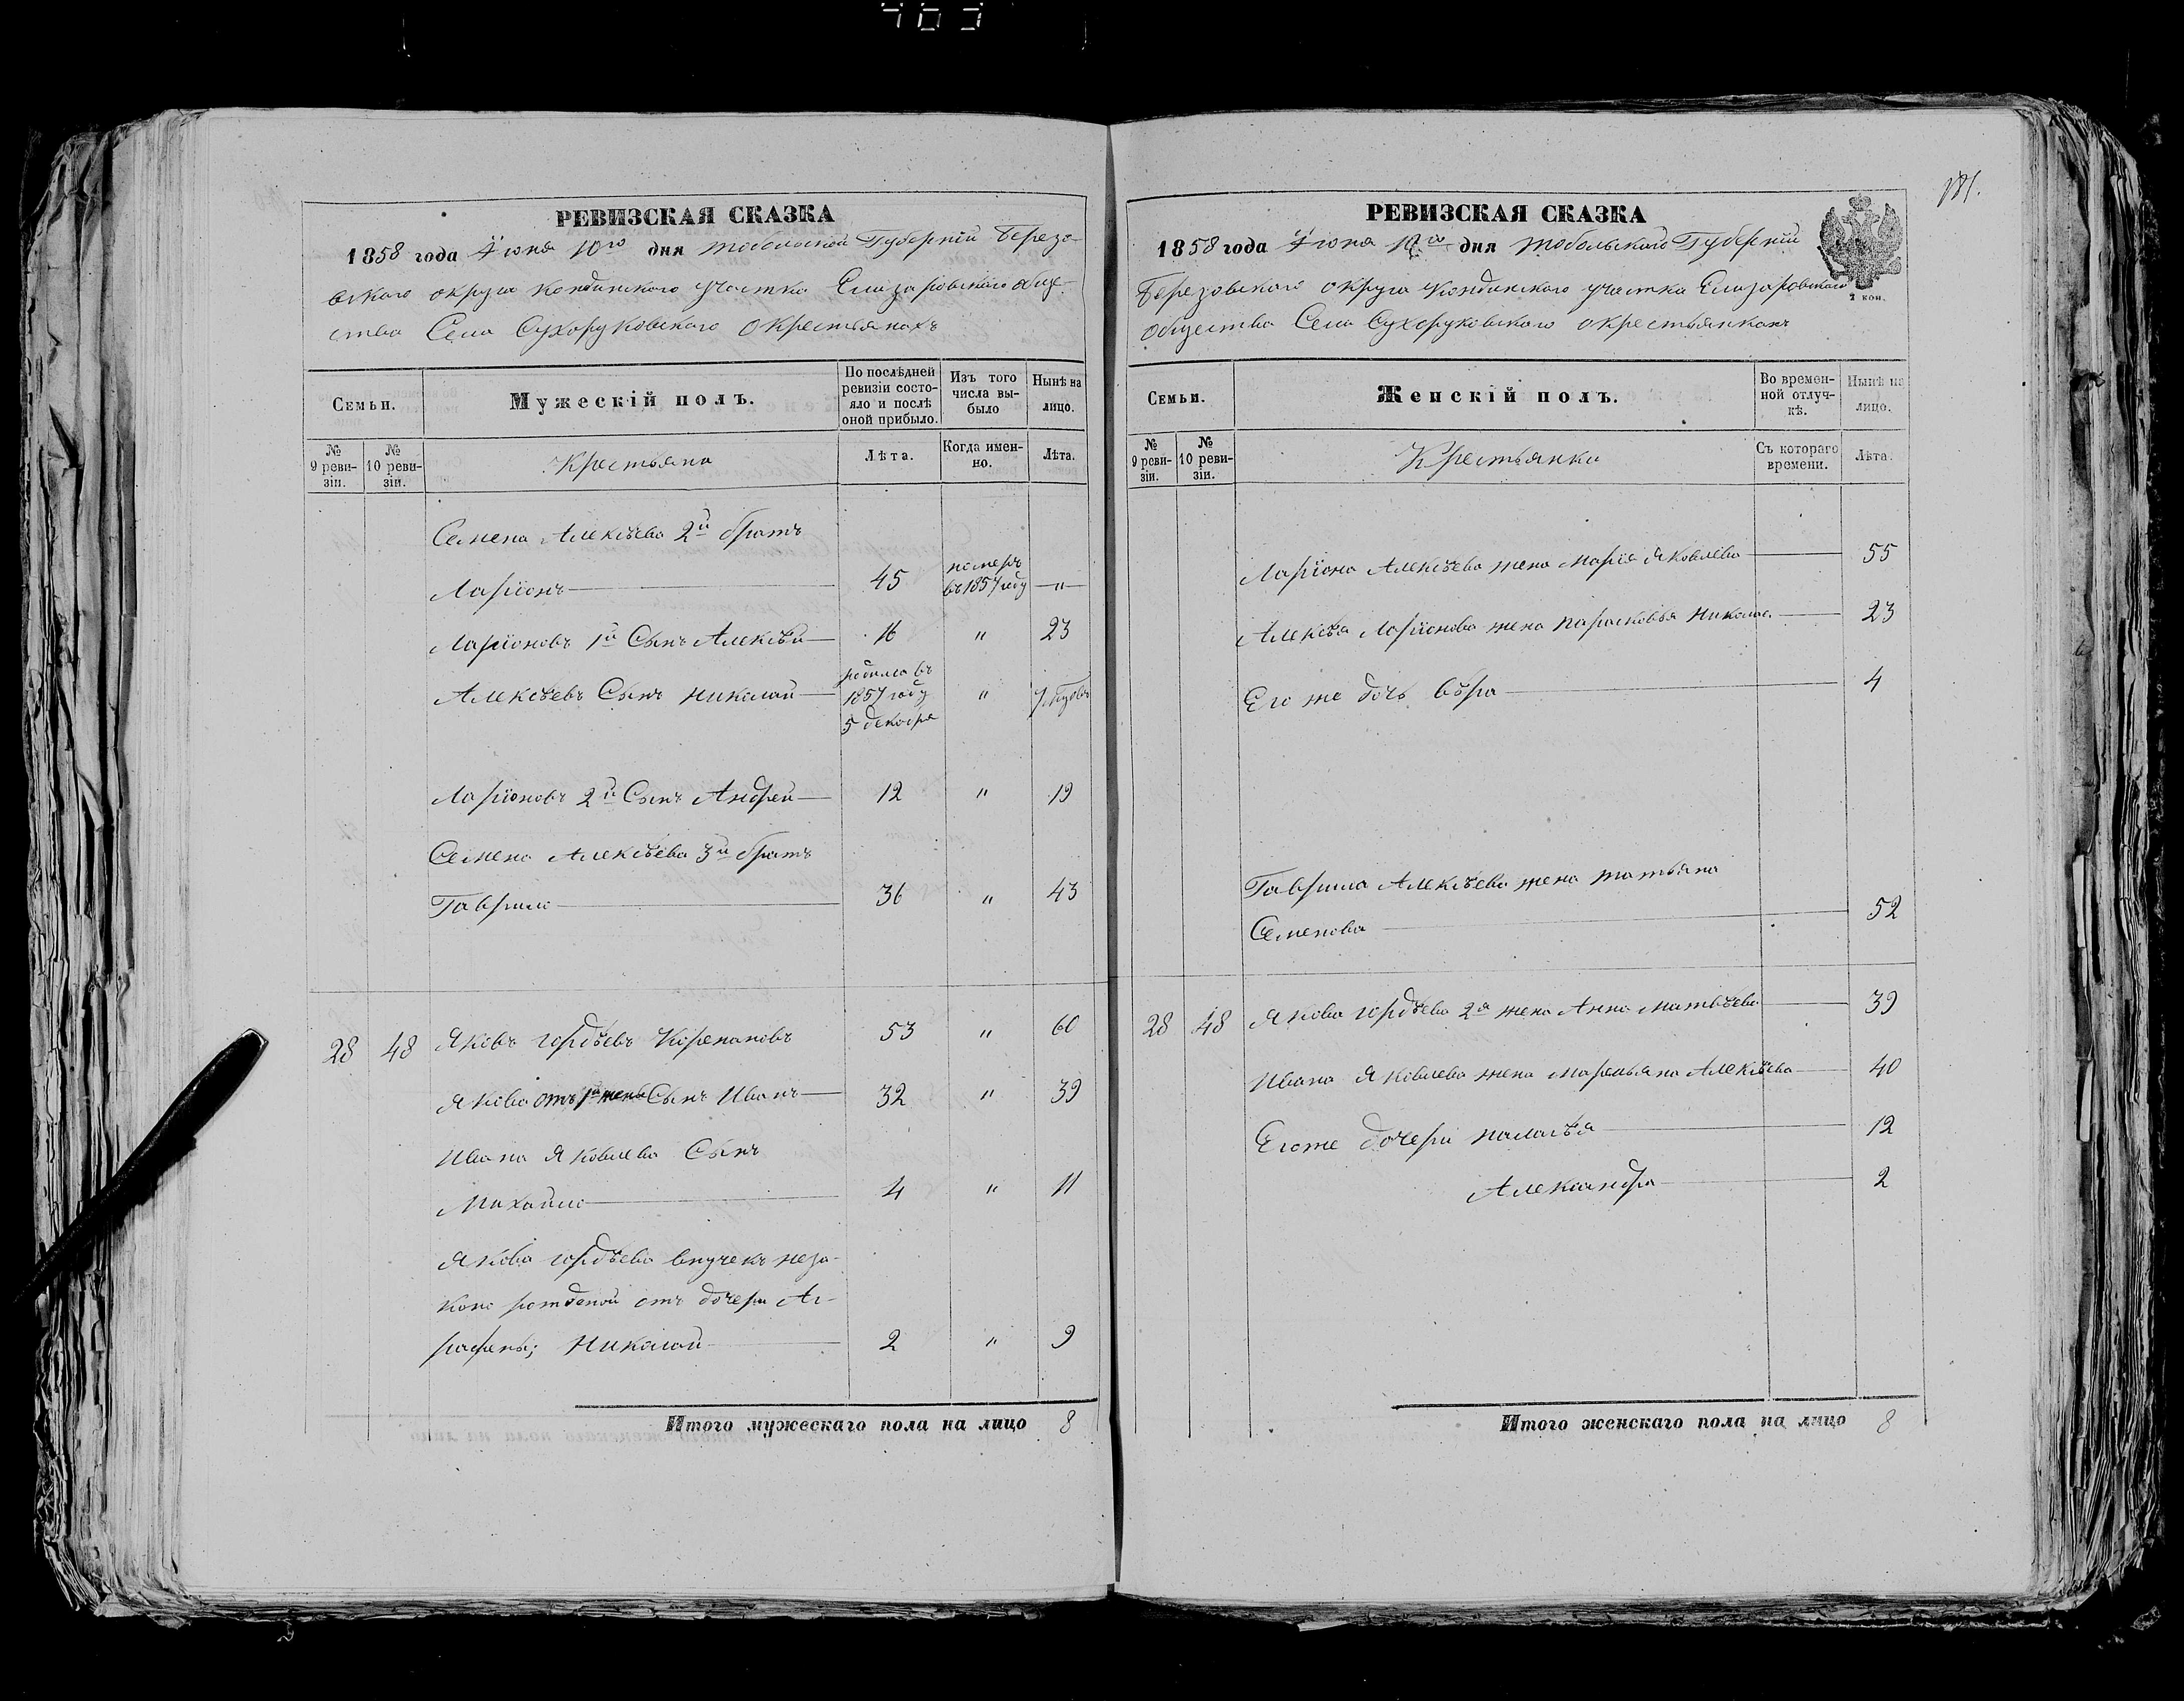 403
РЕВИЗСКАЯ СКАЗКА
1858 года Июня 10го дня Тобольской Губерніи Березо-
вскаго округа Кондинскаго участка Елизаровскаго обще-
ства Села Сухоруковскаго о крестьянахъ
Семьи.
Мужескій полъ.
По послѣдней ревизіи состо-
яло и послѣ оной прибыло.
Изъ того числа вы-
было
Нынѣ на лицо.
№ 9 реви-
зіи.
№ 10 реви-
зіи.
Крестьяна
Лѣта.
Когда имен-
но.
Лѣта.
Семена Алексѣева 2й братъ
Ларіонъ 45 померъ въ 1857 году —"—
Ларіоновъ 1й Сынъ Алексѣй 16 " 23
Алексѣевъ Сынъ Николай родился въ 1857 году 5 декабря "
Ларіоновъ 2й Сынъ Андрей 12 " 19
Семена Алексѣева 3й братъ
Гаврило 36 " 43
28 48 Яковъ Гордѣевъ Корепановъ 53 " 60
Якова отъ 1й жены Сынъ Иванъ 32 " 39
Ивана Яковлева Сынъ
Михайло 4 " 11
Якова Гордѣева внучекъ неза-
коно рожденой отъ дочери Аг-
рафены; Николай 2 " 9
Итого мужескаго пола на лицо 8
181.
РЕВИЗСКАЯ СКАЗКА
1858 года Июня 10го дня Тобольскаго Губерніи
Березовскаго округа Кондинскаго участка Елизаровскаго
общества Села Сухоруковскаго о крестьянкахъ
2 коп.
Семьи.
Женскій полъ.
Во времен-
ной отлуч-
кѣ.
Нынѣ на лицо.
№ 9 реви-
зіи.
№ 10 реви-
зіи.
Крестьянки
Съ котораго времени.
Лѣта.
Ларіона Алексѣева жена Марія Яковлева 55
Алексѣя Ларіонова жена Парасковья Николае. 23
Его же дочь Вѣра 4
Гаврила Алексѣева жена Татьяна
Семенова 52
28 48 Якова Гордѣева 2я жена Анна Матвѣева 39
Ивана Яковлева жена Маремьяна Алексѣева 40
Егоже дочери Палагѣя 12
Александра 2
Итого женскаго пола на лицо 8